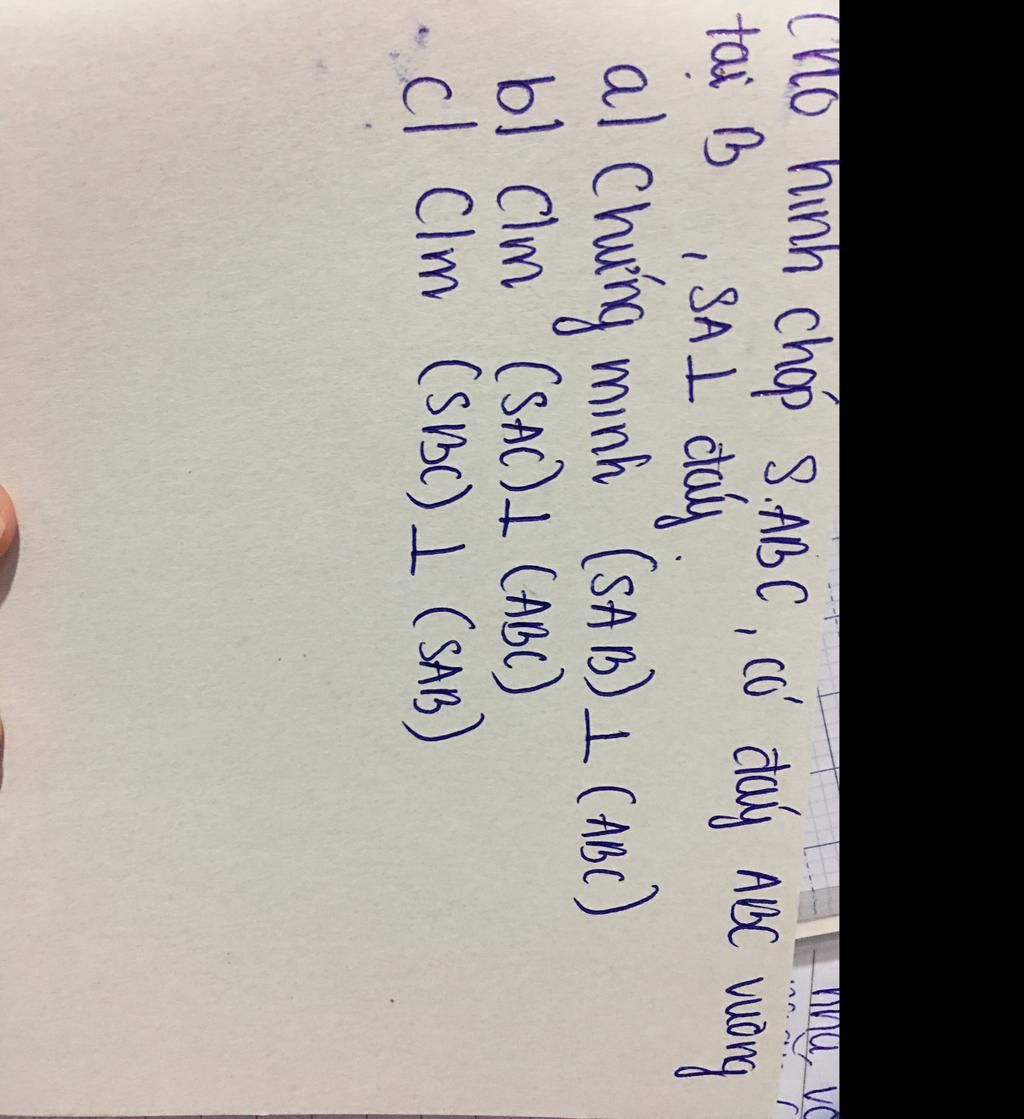 Cho hình chóp S.ABC, có đáy ABC vuông
tại B, SA ⊥ đáy.
a) Chứng minh (SAB) ⊥ (ABC)
b) C/m (SAC) ⊥ (ABC)
c) C/m (SBC) ⊥ (SAB)